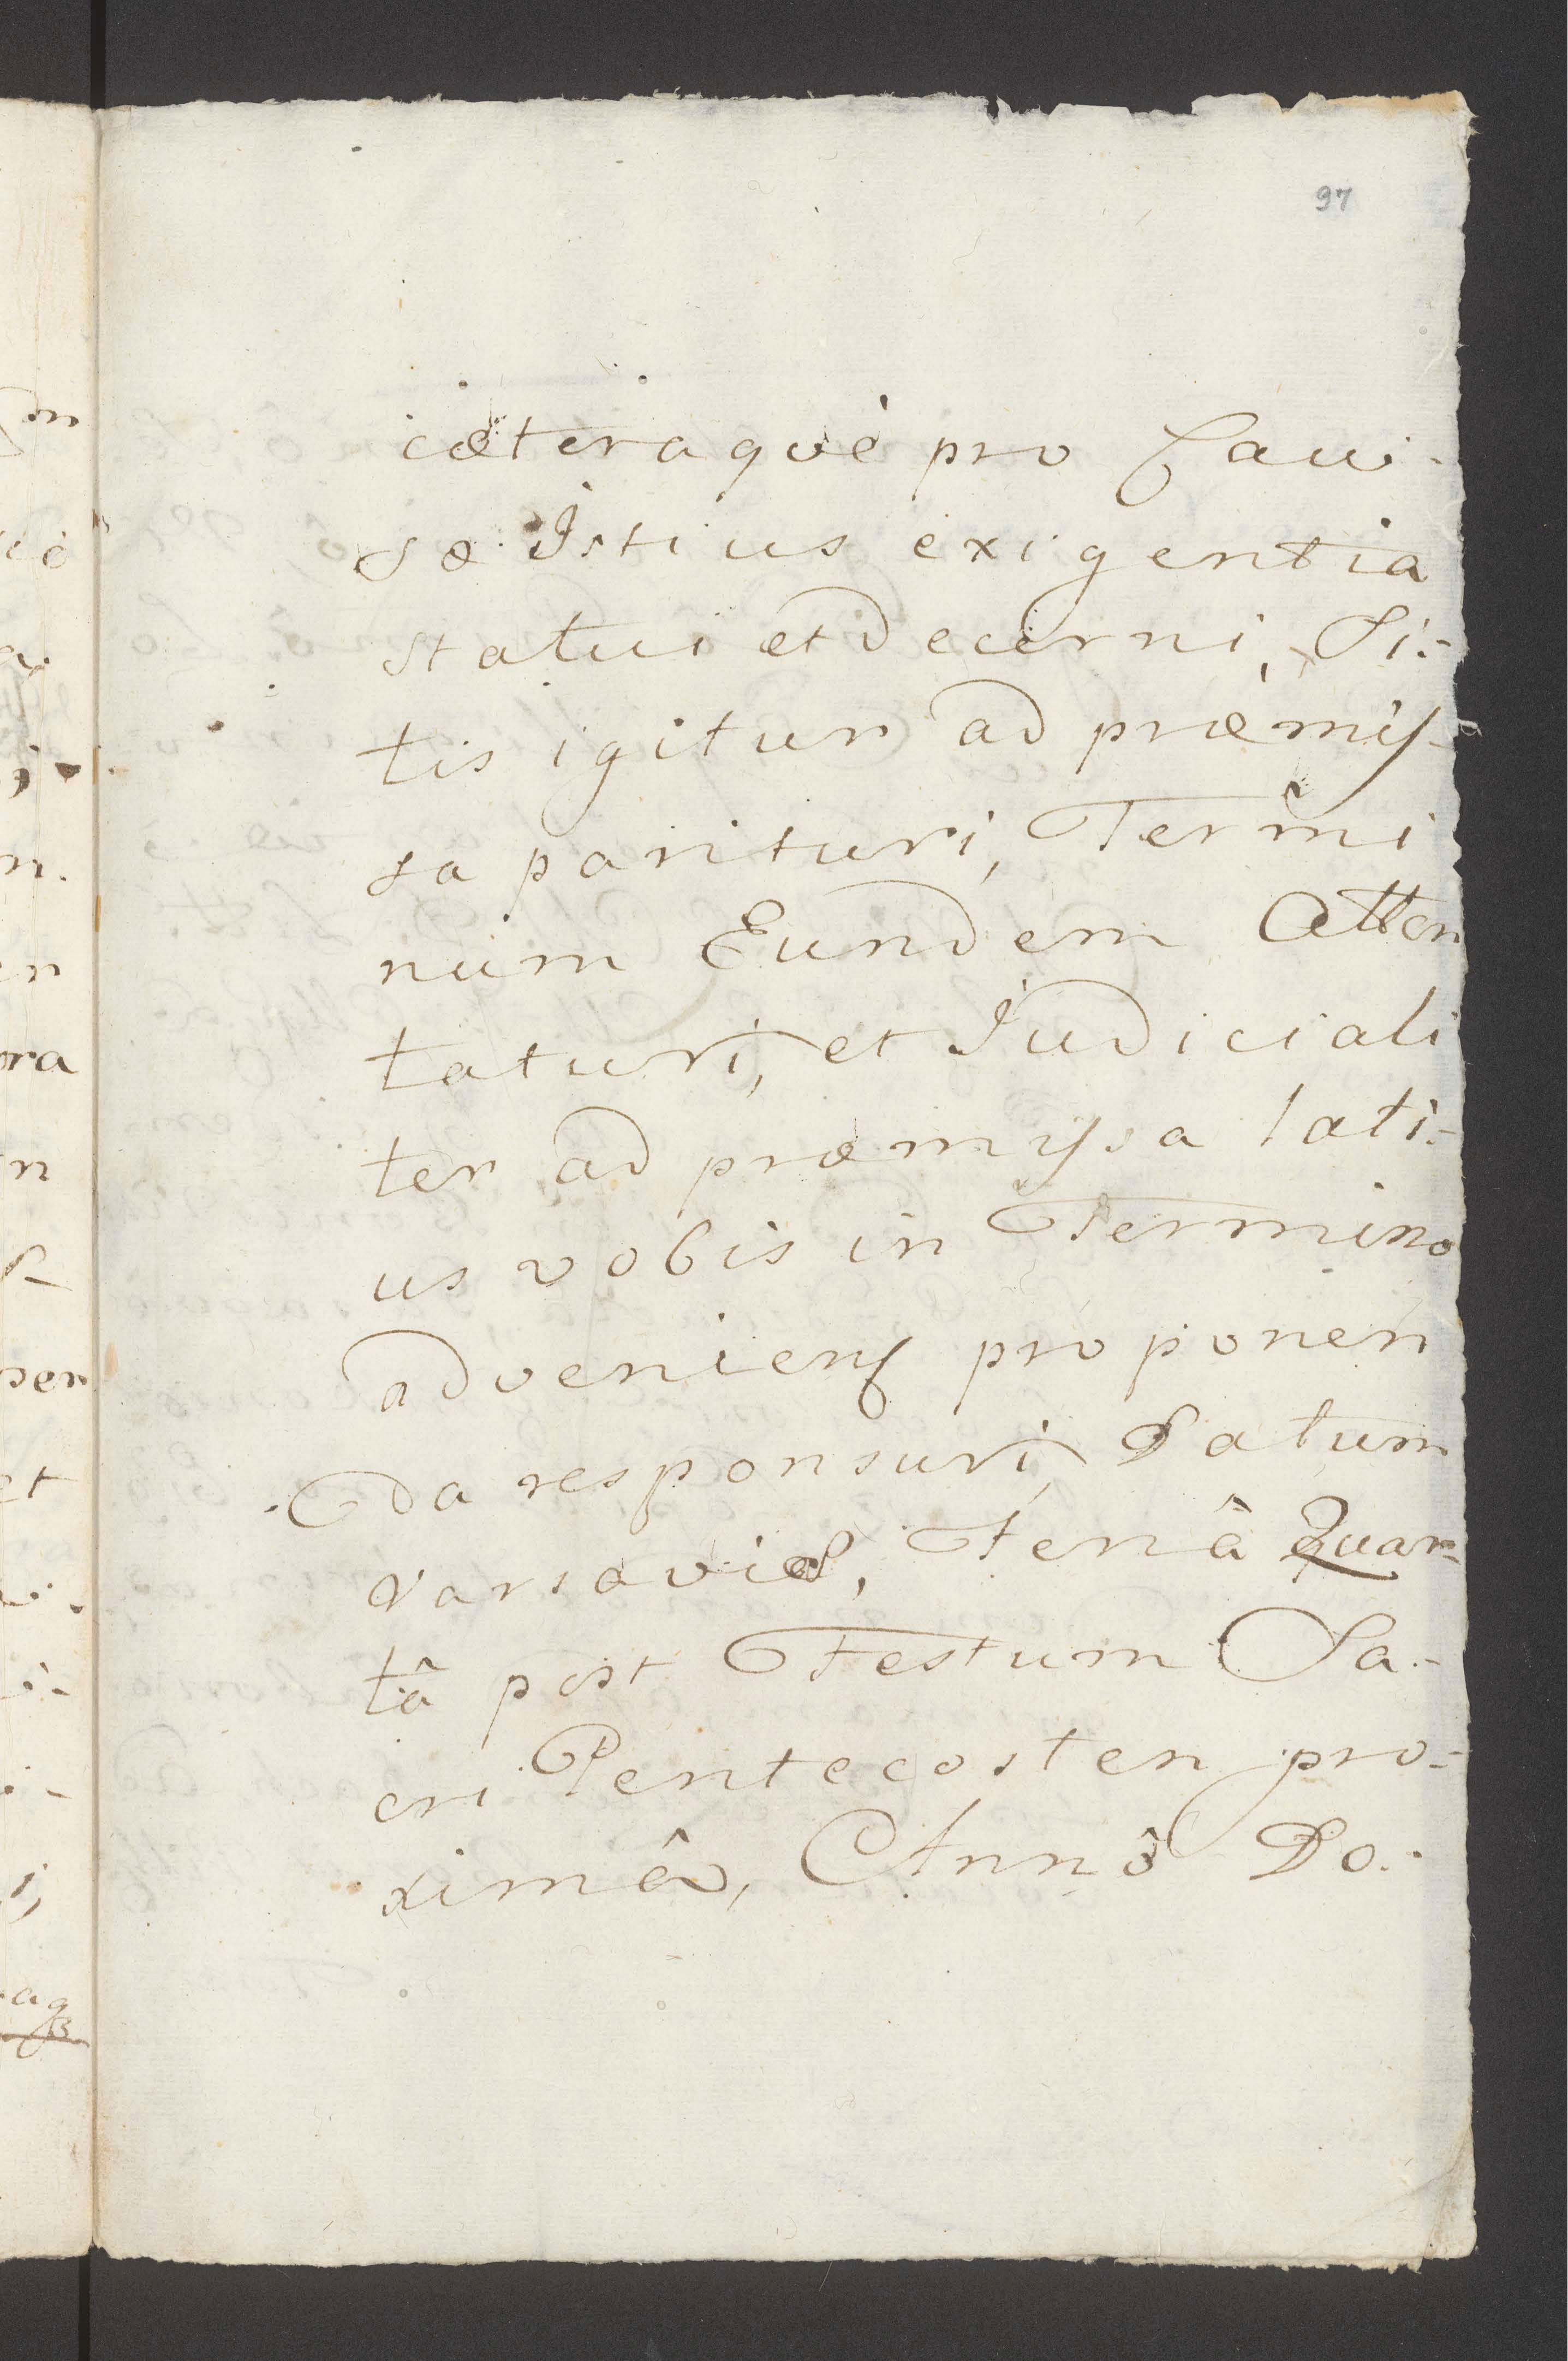 97
cæteraquè pro Cau-
sæ Istius exigentia
statui et decerni, Si-
tis igitur ad præmis-
sa parituri, Termi
num Eundem Atten
taturi, et Judiciali
ter ad præmyssa lati-
us vobis in Termino
adveniens proponen
da responsuri, Datum
Varsaviæ, Feriâ Quar-
tâ post Festum Sa-
cri Pentecosten pro-
ximâ, Annô Do-